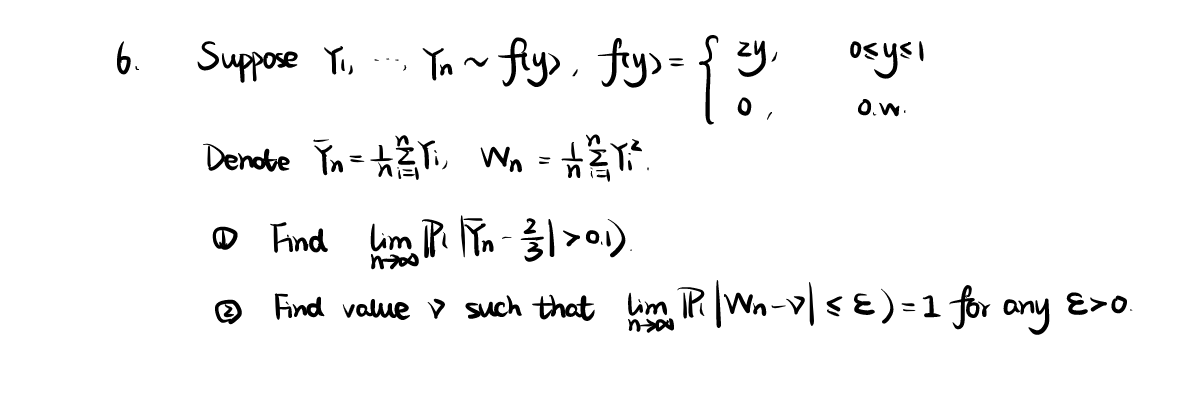 6. Suppose Y₁, ..., Yₙ ~ f(y), f(y) = { 2y, 0≤y≤1
0, o.w.
Denote Ȳₙ = 1/n ∑ᵢ₌₁ⁿ Yᵢ, Wₙ = 1/n ∑ᵢ₌₁ⁿ Yᵢ².
① Find lim n→∞ ℙ(|Ȳₙ - 2/3| > 0.1).
② Find value ν such that lim n→∞ ℙ(|Wₙ - ν| ≤ ε) = 1 for any ε>0.